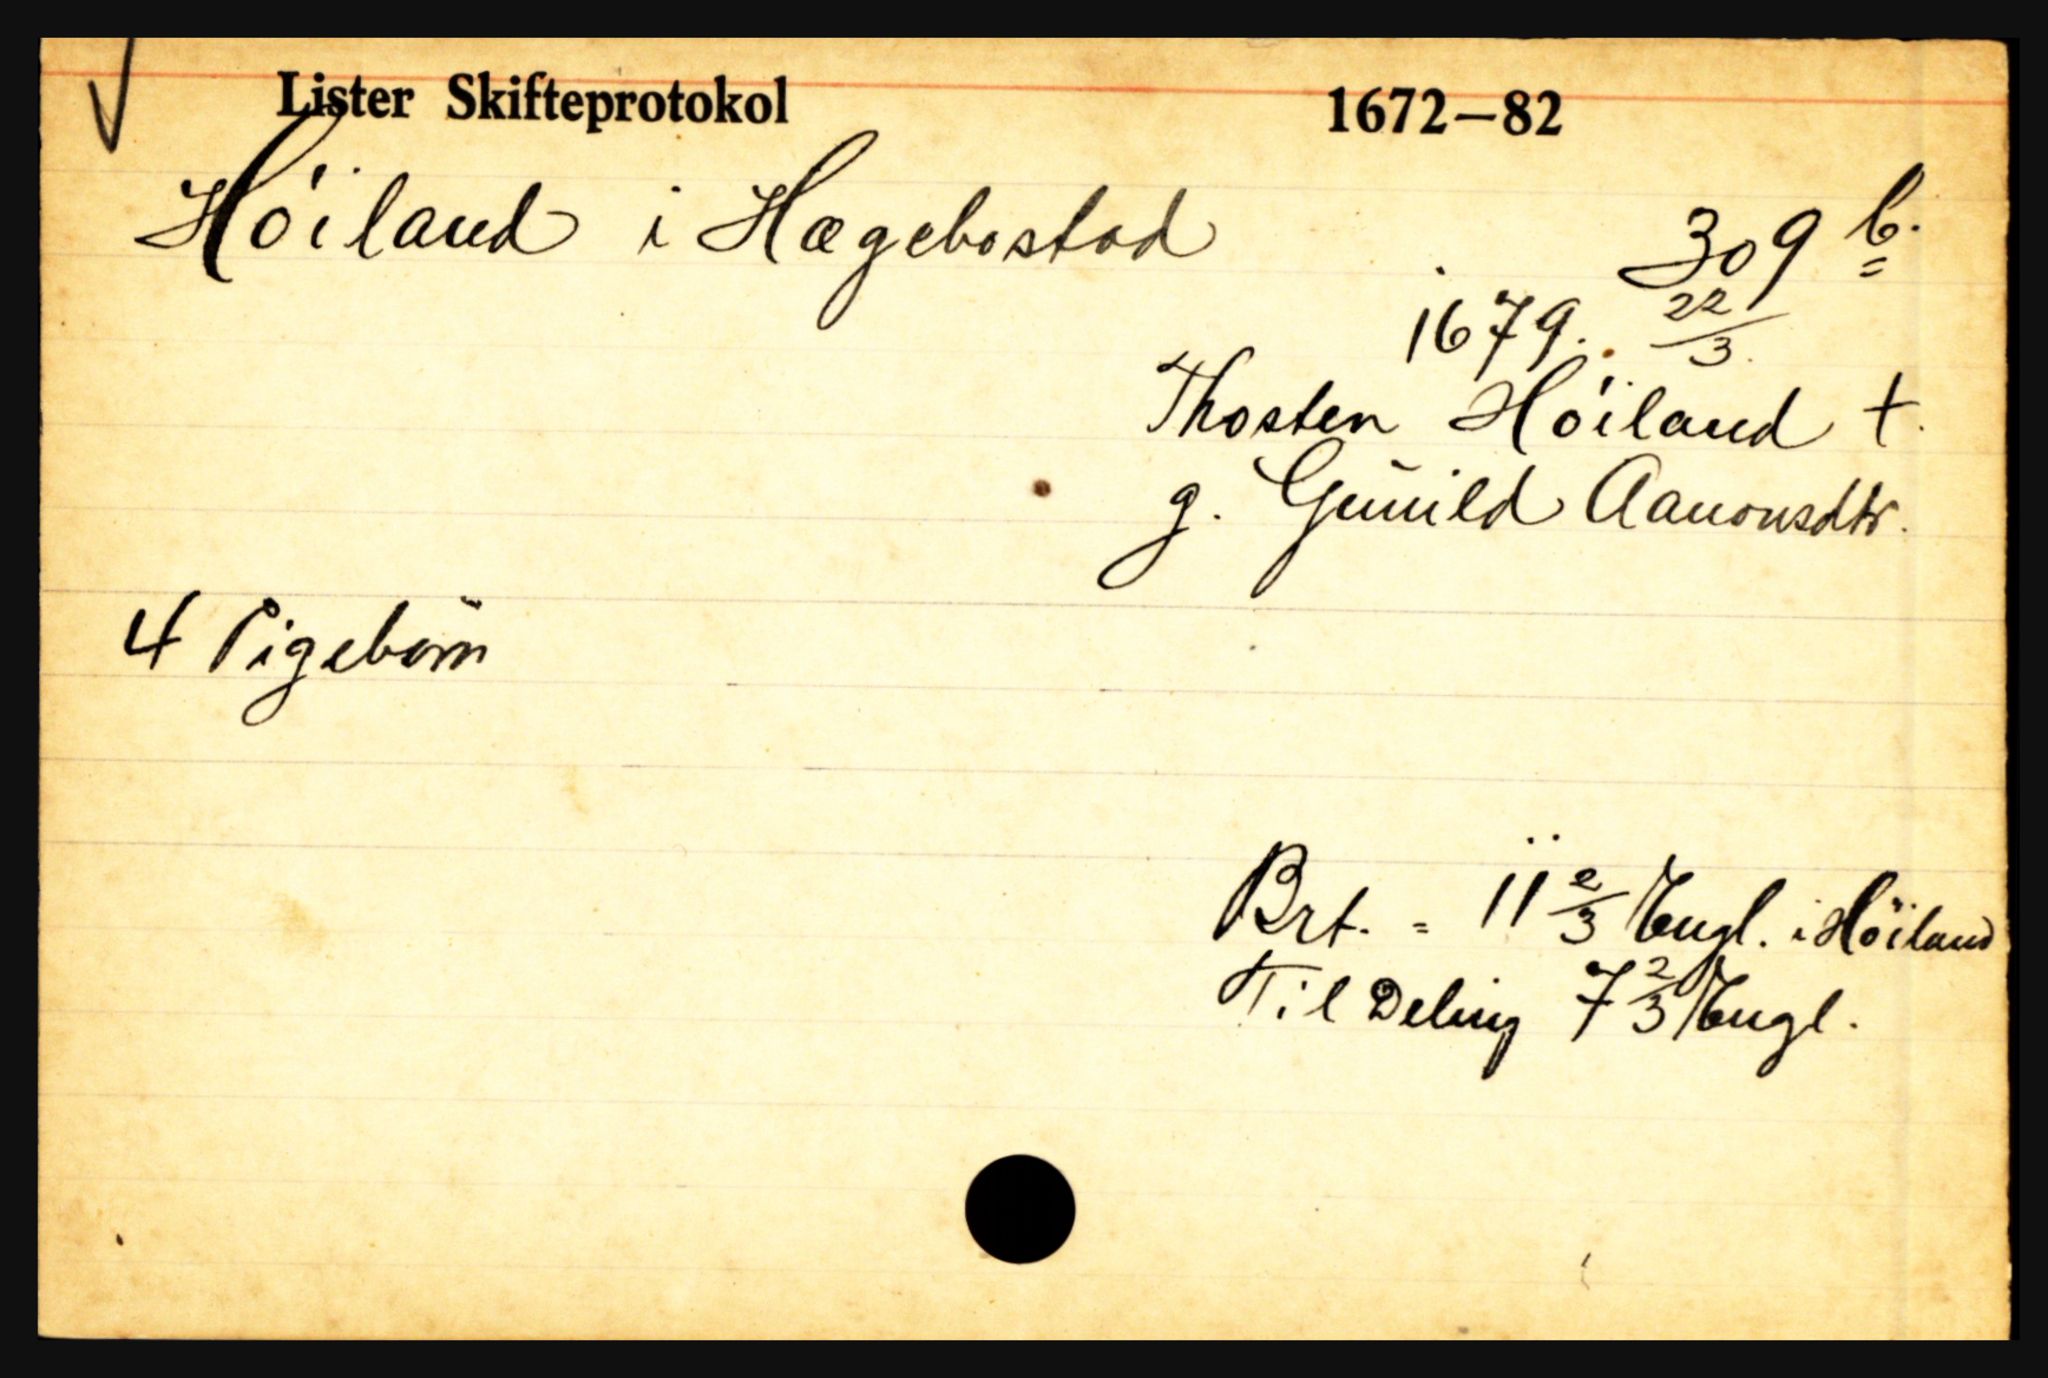 Lister Skifteprotokol 1672—82
Höiland i Hægebostad 309 b.
1679. 22/3.
Thosten Höiland †.
g. Gunild Aanonsdtr.
4 Pigebörn
Brt. = 11 2/3 Engl. i Höiland
Til Deling 7 2/3 Engl.